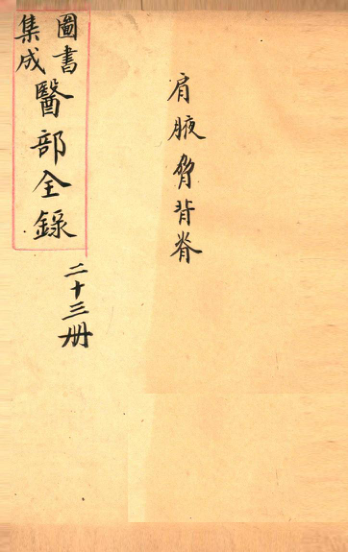 肩腋脅背脊
圖書集成
醫部全錄
二十三册